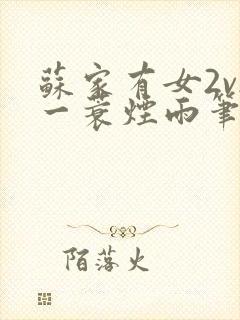 蘇家有女2v
一蓑煙雨筆
陌落火